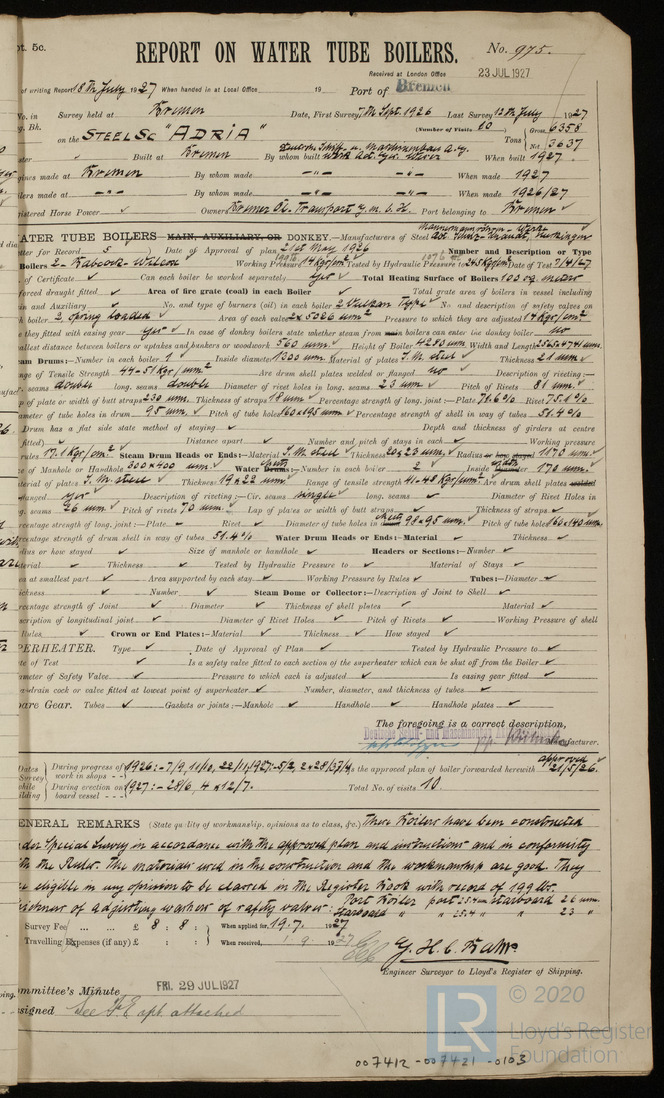 pt. 5c.
REPORT ON WATER TUBE BOILERS.
No. 975.
Received at London Office
23 JUL 1927
of writing Report 18th July 1927 When handed in at Local Office 19 Port of Bremen
No. in Survey held at Bremen Date, First Survey 7th Sept. 1926 Last Survey 12th July 1927
g. Bk. (Number of Visits 60)
on the STEEL SC "ADRIA" Tons Gross 6358 Net 3637
ster Built at Bremen By whom built When built 1927
gines made at Bremen By whom made When made 1927
ilers made at By whom made When made 1926/27
istered Horse Power Owner Port belonging to Bremen
ATER TUBE BOILERS MAIN, AUXILIARY, OR DONKEY.—Manufacturers of Steel
tter for Record S) Date of Approval of plan 21st May 1926 Number and Description or Type
Boilers 2- Babcock-Wilcox Working Pressure 14 Kgr/cm² Tested by Hydraulic Pressure to 24.5 Kgr/cm² Date of Test 7/4/27
of Certificate Can each boiler be worked separately Yes Total Heating Surface of Boilers 100 sq. meter
forced draught fitted Area of fire grate (coal) in each Boiler Total grate area of boilers in vessel including
in and Auxiliary No. and type of burners (oil) in each boiler 2 Vulkan Type No. and description of safety valves on
h boiler 2 spring loaded Area of each valve 2x5026 mm² Pressure to which they are adjusted 14 Kgr/cm²
e they fitted with easing gear Yes In case of donkey boilers state whether steam from main boilers can enter the donkey boiler no
allest distance between boilers or uptakes and bunkers or woodwork 560 mm. Height of Boiler 4280 mm Width and Length
eam Drums:—Number in each boiler 1 Inside diameter 1300 mm. Material of plates S.M. steel Thickness 21 mm
nge of Tensile Strength 44-51 Kgr/mm² Are drum shell plates welded or flanged no Description of riveting:—
. seams double long. seams double Diameter of rivet holes in long. seams 23 mm. Pitch of Rivets 81 mm.
p of plate or width of butt straps 230 mm. Thickness of straps 18 mm Percentage strength of long. joint:—Plate 78.6% Rivet 75.1%
ameter of tube holes in drum 95 mm. Pitch of tube holes 160x195 mm. Percentage strength of shell in way of tubes 51.4%
Drum has a flat side state method of staying Depth and thickness of girders at centre
fitted) Distance apart Number and pitch of stays in each Working pressure
rules 17.1 Kgr/cm² Steam Drum Heads or Ends:—Material S.M. steel Thickness 20x23 mm. Radius or how stayed 1170 mm.
e of Manhole or Handhole 300x400 mm. Water Drums:—Number in each boiler 2 Inside diameter 170 mm.
terial of plates S.M. steel Thickness 19x22 mm Range of tensile strength 41-48 Kgr/mm² Are drum shell plates welded
flanged yes Description of riveting:—Cir. seams single long. seams Diameter of Rivet Holes in
g. seams 26 mm Pitch of rivets 70 mm. Lap of plates or width of butt straps Thickness of straps
rcentage strength of long. joint:—Plate Rivet Diameter of tube holes in 98x95 mm. Pitch of tube holes 160x140 mm.
rcentage strength of drum shell in way of tubes 51.4% Water Drum Heads or Ends:—Material Thickness
dius or how stayed Size of manhole or handhole Headers or Sections:—Number
terial Thickness Tested by Hydraulic Pressure to Material of Stays
ea at smallest part Area supported by each stay Working Pressure by Rules Tubes:—Diameter
ickness Number Steam Dome or Collector:—Description of Joint to Shell
rcentage strength of Joint Diameter Thickness of shell plates Material
scription of longitudinal joint Diameter of Rivet Holes Pitch of Rivets Working Pressure of shell
Rules Crown or End Plates:—Material Thickness How stayed
PERHEATER. Type Date of Approval of Plan Tested by Hydraulic Pressure to
te of Test Is a safety valve fitted to each section of the superheater which can be shut off from the Boiler
ameter of Safety Valve Pressure to which each is adjusted Is easing gear fitted
a drain cock or valve fitted at lowest point of superheater Number, diameter, and thickness of tubes
pare Gear. Tubes Gaskets or joints:—Manhole Handhole Handhole plates
The foregoing is a correct description,
Manufacturer.
Dates Survey while building During progress of work in shops - - 1926:- 7/9, 11/10, 22/11, 1927:- 5/2, 2x28/3, 7/4, Is the approved plan of boiler forwarded herewith approved 21/5/26.
During erection on board vessel - - - 1927:- 28/6, 4 x 12/7. Total No. of visits 10.
ENERAL REMARKS (State quality of workmanship, opinions as to class, &c.) These Boilers have been constructed
der Special Survey in accordance with the approved plan and instructions and in conformity
th the Rules. The materials used in the construction and the workmanship are good. They
e eligible in my opinion to be classed in the Register Book with record of 199 lbs.
ickness of adjusting washers of safety valves: Port Boiler port 25.4 mm starboard 26 mm.
Starboard " " 25.4 " " 23 "
Survey Fee ... ... £ 8 : 8 : When applied for, 19.7. 1927
Travelling Expenses (if any) £ : : When received, 1.9.1927
Engineer Surveyor to Lloyd's Register of Shipping.
ommittee's Minute FRI. 29 JUL 1927
signed See F.E. rpt. attached
LR © 2020
Lloyd's Register
Foundation
007412-007421-0103